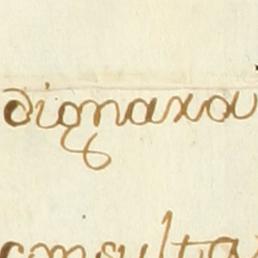 dignaxa
consulta